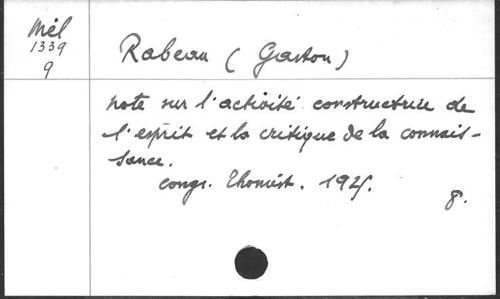 Mél
1339
9
Rabeau (Gaston)
note sur l'activité constructrice de
l'esprit et la critique de la connais-
sance.
congr. Thomist. 1925.
8.